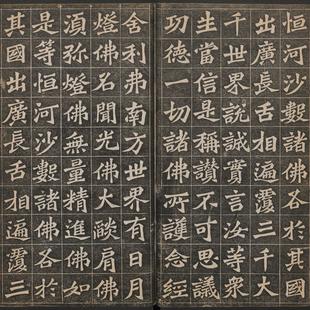 恒河沙數諸佛各於其國
出廣長舌相遍覆三千大
千世界說誠實言汝等衆
生當信是稱讚不可思議
功德一切諸佛所護念經
舍利弗南方世界有日月
燈佛名聞光佛大燄肩佛
須彌燈佛無量精進佛如
是等恒河沙數諸佛各於
其國出廣長舌相遍覆三